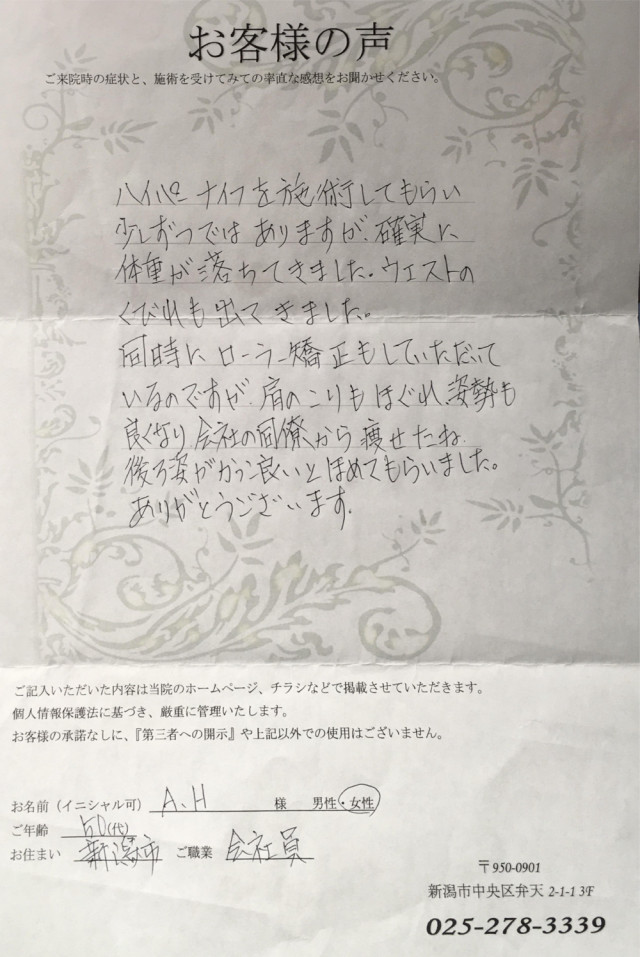 お客様の声
ご来院時の症状と、施術を受けてみての率直な感想をお聞かせください。
ハイパーナイフを施術してもらい
少しずつではありますが、確実に
体重が落ちてきました。ウエストの
くびれも出てきました。
同時にローラー矯正もしていただいて
いるのですが、肩のこりもほぐれ、姿勢も
良くなり会社の同僚から痩せたね
後ろ姿がカッコ良いとほめてもらいました。
ありがとうございます。
ご記入いただいた内容は当院のホームページ、チラシなどで掲載させていただきます。
個人情報保護法に基づき、厳重に管理いたします。
お客様の承諾なしに、『第三者への開示』や上記以外での使用はございません。
お名前（イニシャル可） A.H 様 男性・女性
ご年齢 50(代)
お住まい 新潟市 ご職業 会社員
〒950-0901
新潟市中央区弁天 2-1-1 3F
025-278-3339